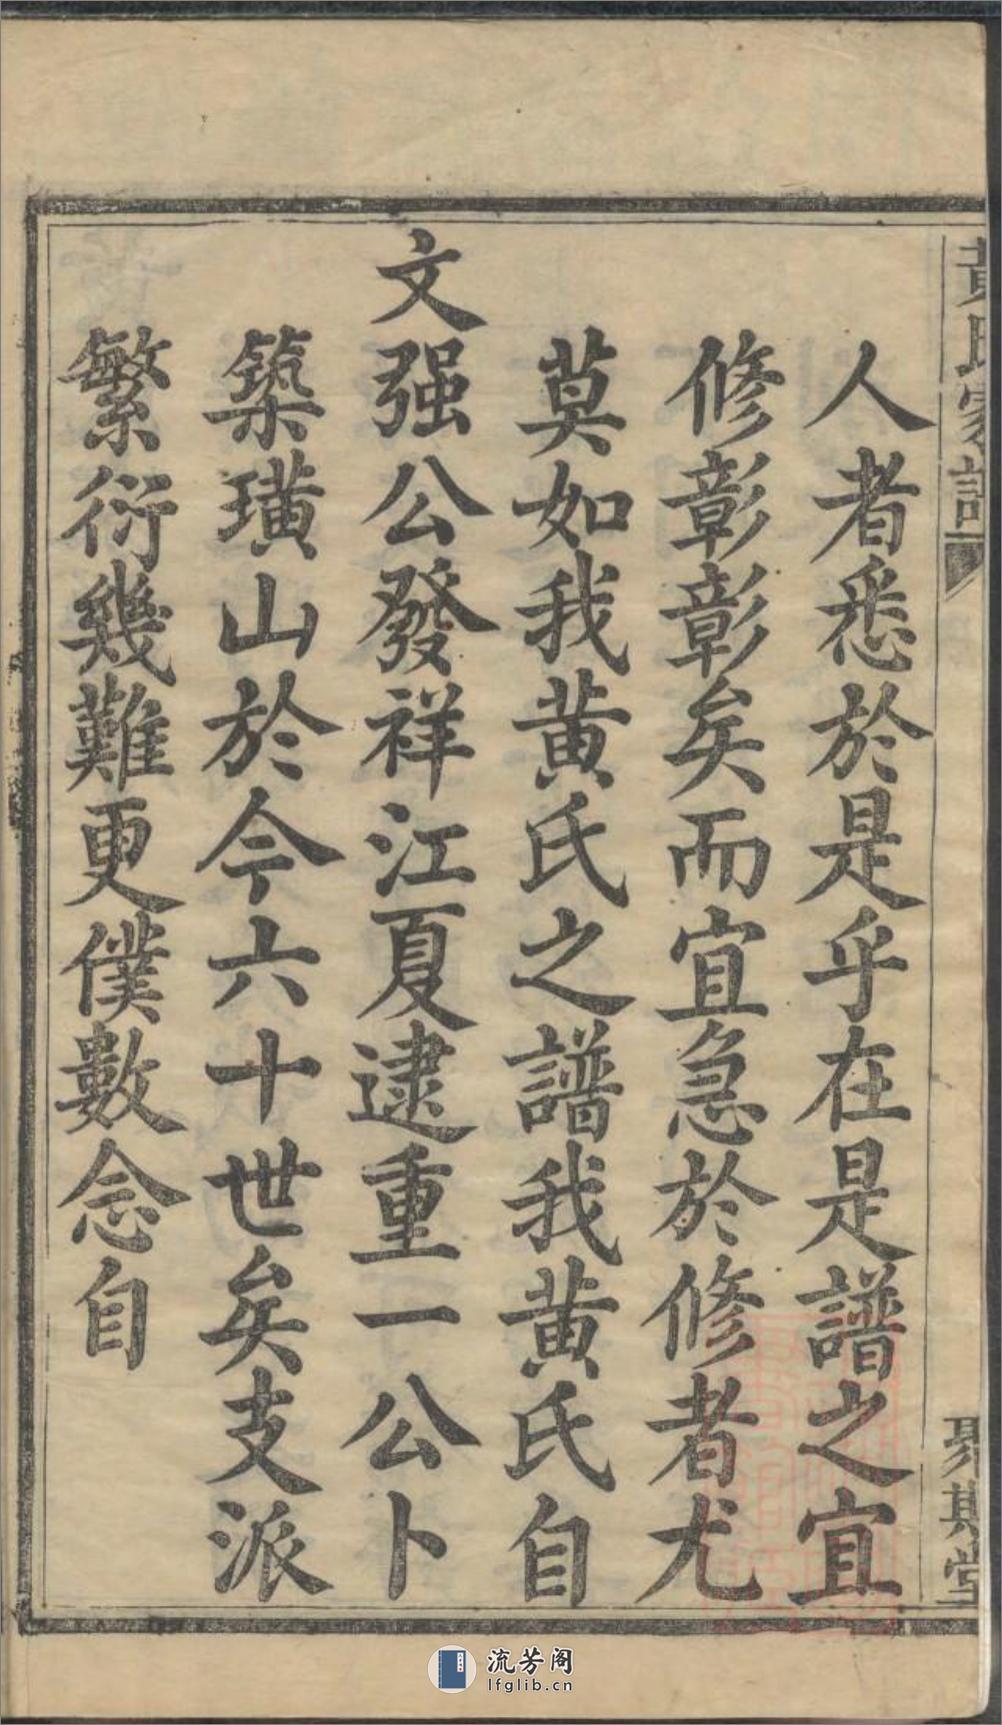 黃氏家譜
聚斯堂
人者悉於是乎在是譜之宜
修彰彰矣而宜急於修者尤
莫如我黄氏之譜我黄氏自
文强公發祥江夏逮重一公卜
築璜山於今六十世矣支派
繁衍幾難更僕數念自
流芳阁
lfglib.cn